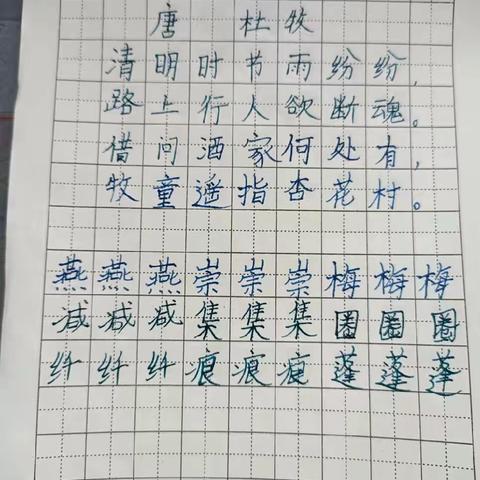 唐 杜牧
清明时节雨纷纷,
路上行人欲断魂。
借问酒家何处有,
牧童遥指杏花村。
燕燕燕崇崇崇梅梅梅
减减减集集集圈圈圈
纤纤纤痕痕痕蓬蓬蓬